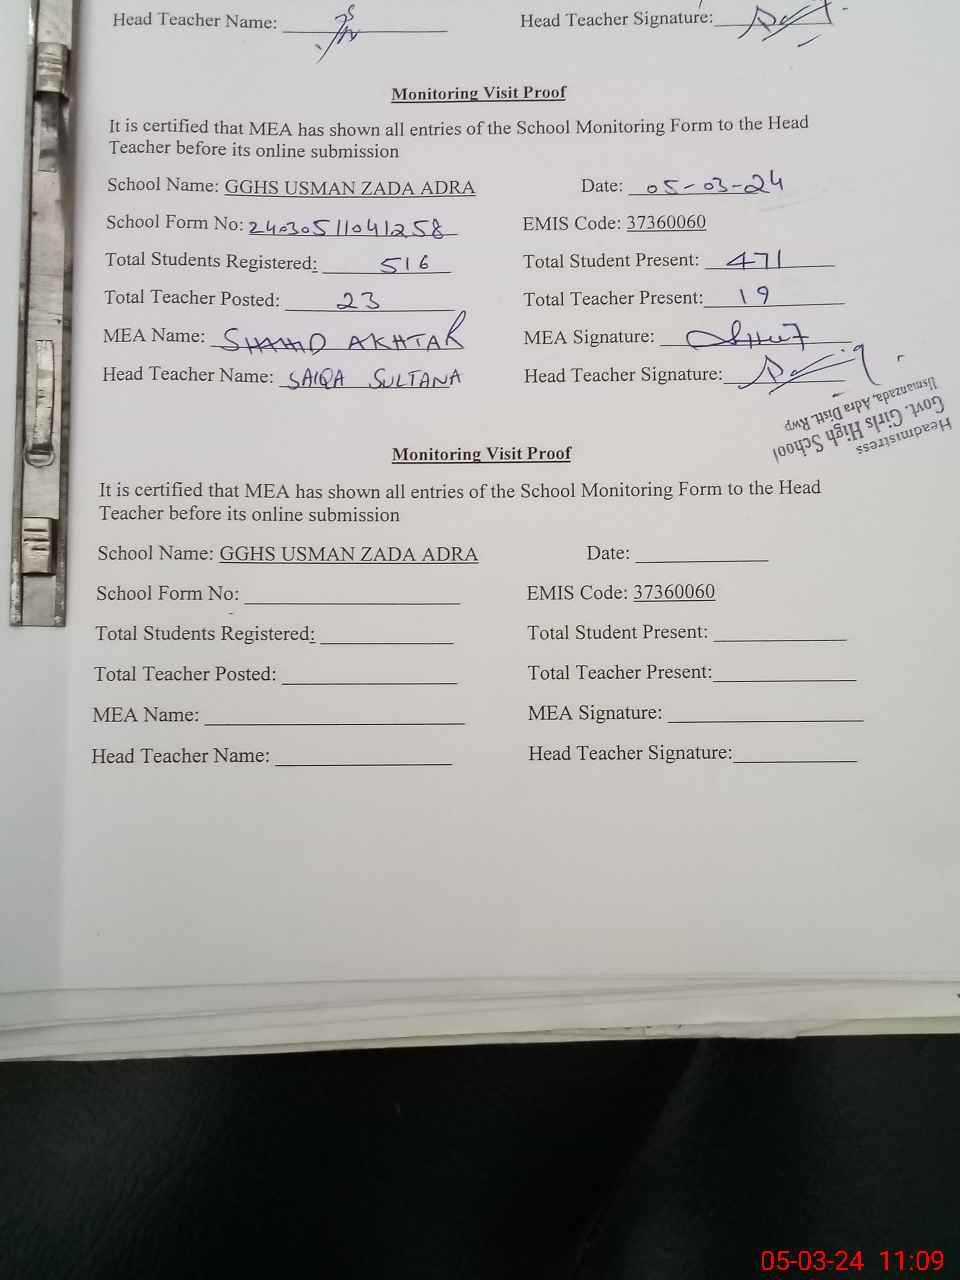 Head Teacher Name: Head Teacher Signature:
Monitoring Visit Proof
It is certified that MEA has shown all entries of the School Monitoring Form to the Head
Teacher before its online submission
School Name: GGHS USMAN ZADA ADRA Date: 05-03-24
School Form No: 24030511041258 EMIS Code: 37360060
Total Students Registered: 516 Total Student Present: 471
Total Teacher Posted: 23 Total Teacher Present: 19
MEA Name: SHAHID AKHTAR MEA Signature:
Head Teacher Name: SAIQA SULTANA Head Teacher Signature:
Headmistress
Govt. Girls High School
Usmanzada, Adra Distt. Rwp
Monitoring Visit Proof
It is certified that MEA has shown all entries of the School Monitoring Form to the Head
Teacher before its online submission
School Name: GGHS USMAN ZADA ADRA Date:
School Form No: EMIS Code: 37360060
Total Students Registered: Total Student Present:
Total Teacher Posted: Total Teacher Present:
MEA Name: MEA Signature:
Head Teacher Name: Head Teacher Signature:
05-03-24 11:09